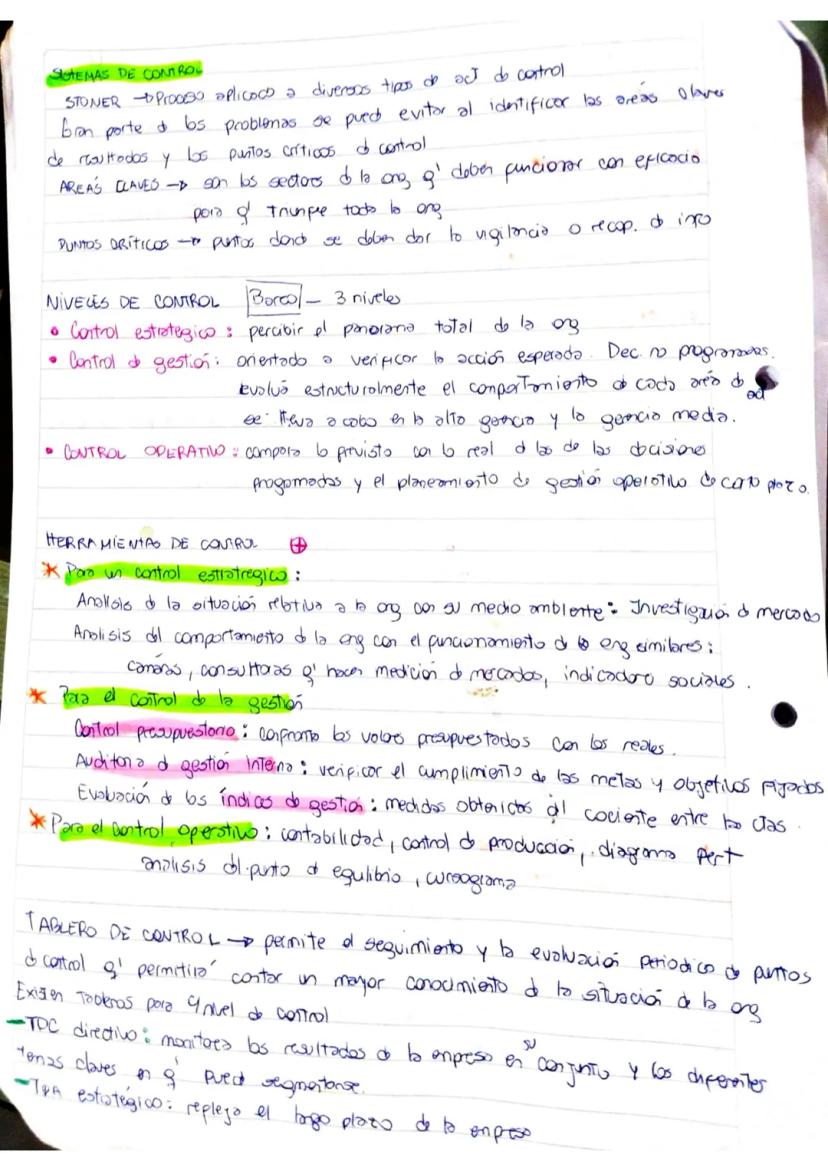 SISTEMAS DE CONTROL
STONER → Proceso aplicado a diversos tipos de act de control
Gran parte d los problemas se pued evitar al identificar las areas claves
de resultados y los puntos críticos d control
AREAS CLAVES → son los sectores d la org q' deben funcionar con eficacia
para q' triunfe toda la org
PUNTOS CRÍTICOS → puntos dond se deben dar la vigilancia o recop. d info
NIVELES DE CONTROL Barco — 3 niveles
• Control estrategico: percibir el panorama total de la org
• Control d gestión: orientado a verificar la acción esperada. Dec. no programadas.
evalua estructuralmente el comportamiento d cada area d act
se lleva a cabo en la alta gerencia y la gerencia media.
• CONTROL OPERATIVO: compara lo previsto con lo real d las de las decisiones
progamadas y el planeamiento de gestión operativo de corto plazo.
HERRAMIENTAS DE CONTROL
* Para un control estratregico:
Analisis d la situación relativa a la org con su medio ambiente: Investigación d mercado
Analisis del comportamiento d la org con el funcionamiento d org similares:
camaras, consultoras q' hacen medición d mercados, indicadore sociales.
* Para el control de la gestión
Control presupuestario: confronta los valores presupuestados con los reales.
Auditoria d gestión interna: verificar el cumplimiento de las metas y objetivos fijados
Evaluación d los índices de gestion: medidas obtenidas del cociente entre las
* Para el control operativo: contabilidad, control d producción, diagrama Pert
analisis del punto d equlibrio, cursograma
TABLERO DE CONTROL → permite el seguimiento y la evaluación periodica de puntos
d control q' permitirá contar un mayor conocimiento d la situación de la org
Existen tableros para 4 nivel de control
- TDC directivo: monitorea los resultados d la empresa en su conjunto y los diferentes
temas claves en q' pued segmentarse.
- estategico: refleja el largo plazo de la empresa